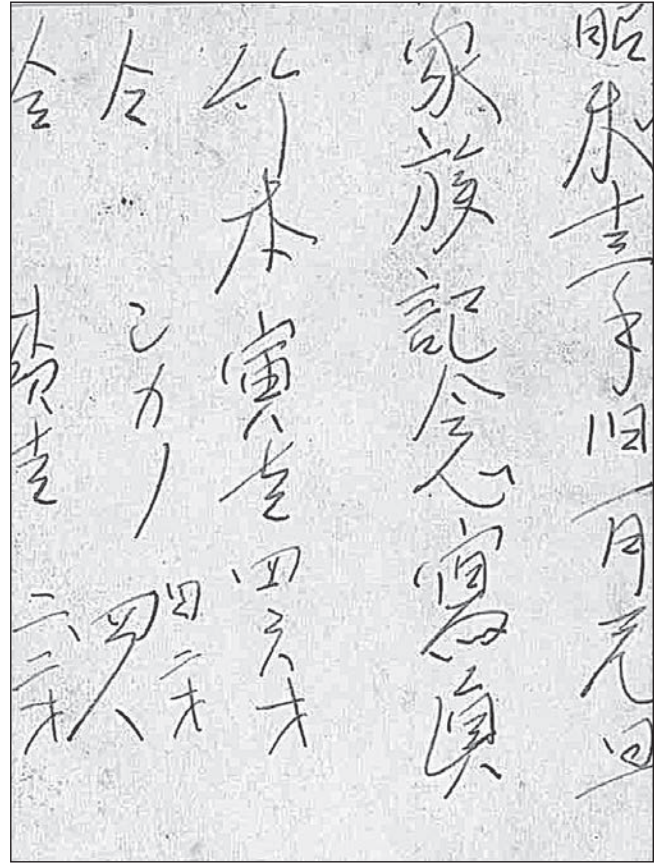 昭和年旧一月元旦
家族記念寫眞
竹本寅吉四六才
仝シカノ四二才
仝吉二二才